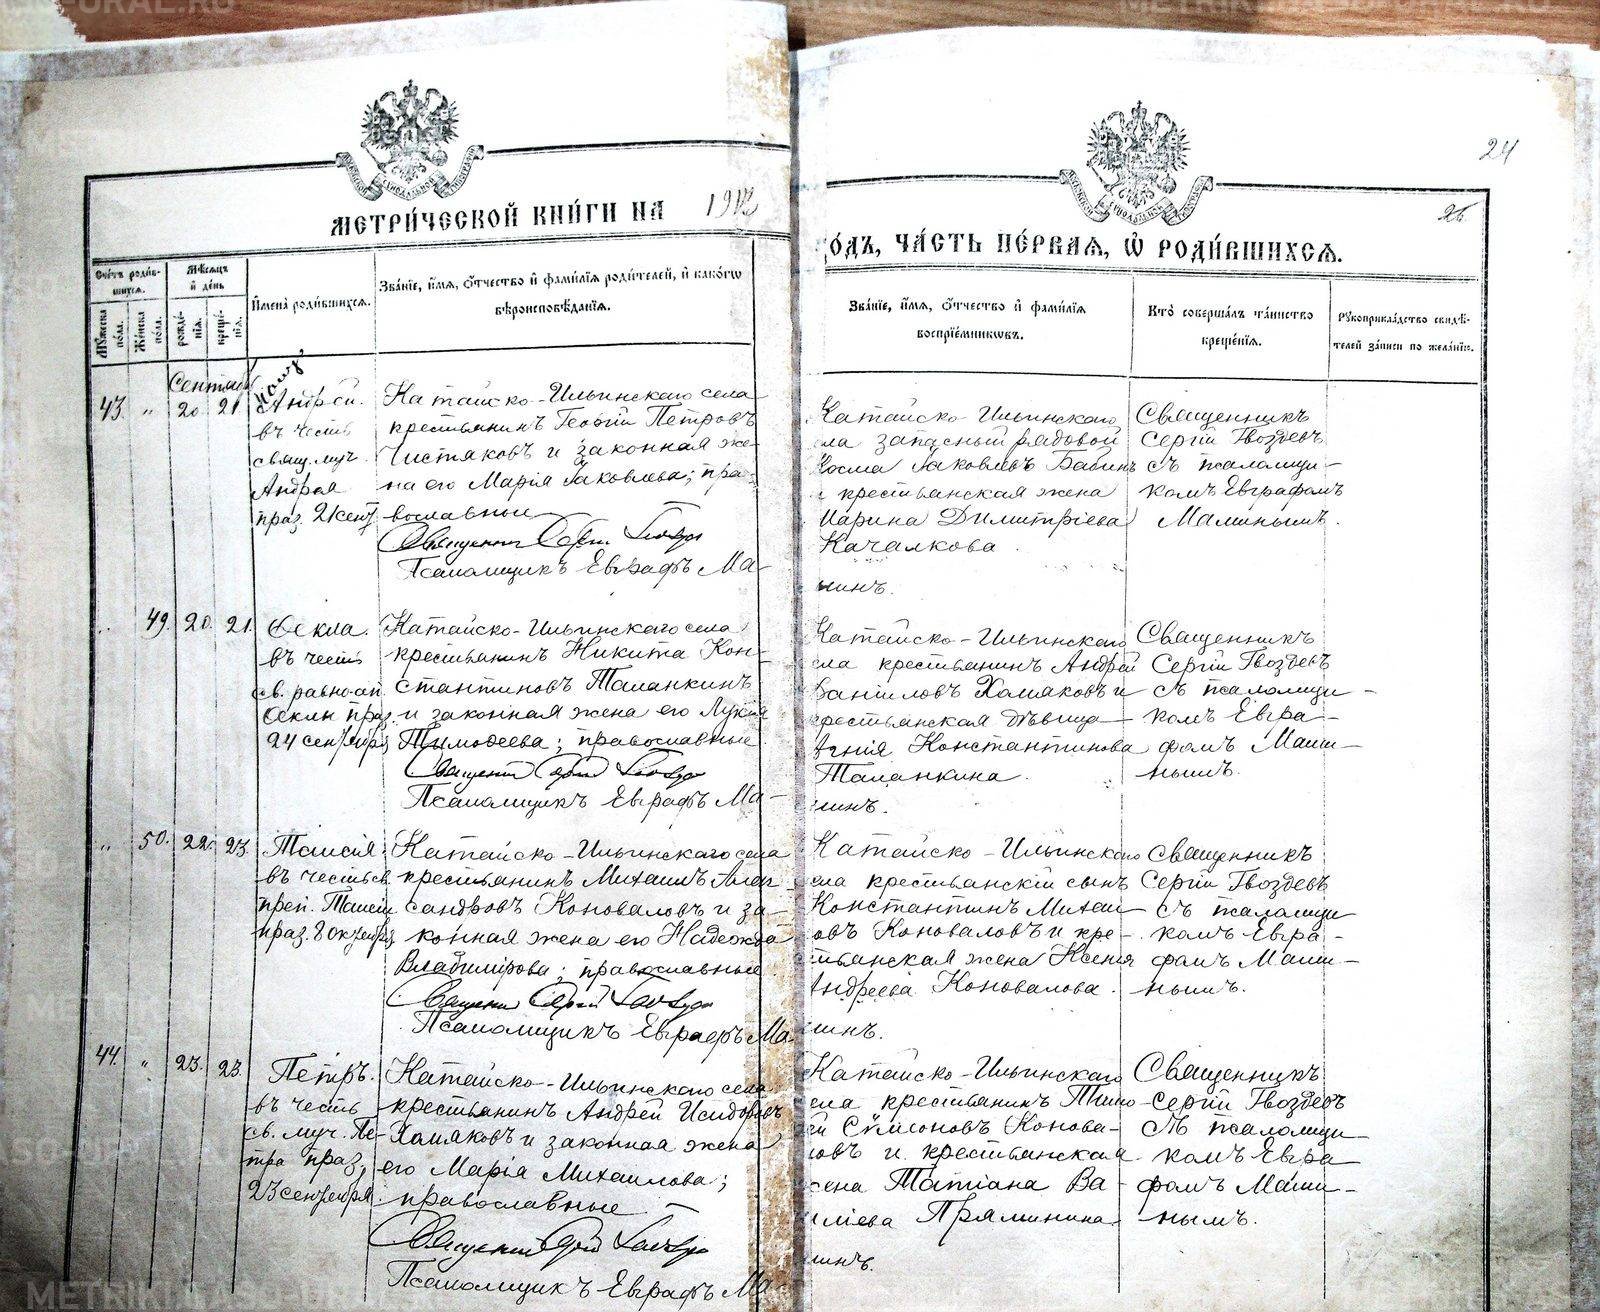 24
МЕТРИ́ЧЕСКОЙ КНИ́ГИ НА 1912
26.
ОДЪ, ЧА́СТЬ ПЕ́РВАЯ, Ѡ РОДИ́ВШИХСЯ.
Сче́тъ роди́вшихся.
Мѣ́сяцъ и́ де́нь
И́мена̀ роди́вшихся.
Зва́нїе, и́мя, ѻ́тчество и́ фами́лїя роди́телей, и́ како́гѡ
вѣроисповѣ́данїя.
Му́жеска по́ла.
Же́нска по́ла.
рожде́нїя.
креще́нїя.
Зва́нїе, и́мя, ѻ́тчество и́ фами́лїя
воспрїе́мниковъ.
Кто̀ соверша́лъ та́инство
креще́нїя.
Рукоприкла́дство свидѣ́телей за́писи по жела́нїю.
Сентября
43. " 20 21 Андрей.
въ честь
свящ. муч.
Андрея
праз. 21 сент
Катайско-Ильинскаго села
крестьянинъ Георгій Петровъ
Чистяковъ и законная же-
на его Марія Яковлева; пра-
вославные
Священникъ Сергій Гвоздевъ
Псаломщикъ Евграфъ Ма-
Катайско-Ильинскаго
ла запасный рядовой
Косма Яковлевъ Бабинъ
и крестьянская жена
Марина Димитріева
Качалкова.
минъ.
Священникъ
Сергій Гвоздевъ
съ псаломщи-
комъ Евграфомъ
Маминымъ.
" 49. 20. 21. Ѳекла.
въ честь
св. равноап
Ѳеклы праз.
24 сентября
Катайско-Ильинскаго села
крестьянинъ Никита Кон-
стантиновъ Таланкинъ
и законная жена его Лукія
Тимофеева; православные
Священникъ Сергій Гвоздевъ
Псаломщикъ Евграфъ Ма-
Катайско-Ильинскаго
ла крестьянинъ Андрей
Даниловъ Хомяковъ и
крестьянская дѣвица
Константинова
Таланкина.
минъ.
Священникъ
Сергій Гвоздевъ
съ псаломщи-
комъ Евгра-
фомъ Мами-
нымъ.
" 50. 22. 23. Таисія.
въ честь св.
преп. Таисіи
праз. 8 октября
Катайско-Ильинскаго села
крестьянинъ Михаилъ Алек
сандровъ Коноваловъ и за-
конная жена его Надежда
Владимірова; православные
Священникъ Сергій Гвоздевъ
Псаломщикъ Евграфъ Ма-
Катайско-Ильинскаго
ела крестьянскій сынъ
Константинъ Михаи-
овъ Коноваловъ и кре-
стьянская жена Ксенія
Андреева Коновалова.
минъ.
Священникъ
Сергій Гвоздевъ
съ псаломщи
комъ Евгра-
фомъ Мами-
нымъ.
44. " 23. 23. Петръ.
въ честь
св. муч. Пе-
тра праз.
23 сентября
Катайско-Ильинскаго села
крестьянинъ Андрей Исидоровъ
Хомяковъ и законная жена
его Марія Михаилова;
православные
Священникъ Сергій Гвоздевъ
Псаломщикъ Евграфъ Ма-
Катайско-Ильинскаго
ела крестьянинъ Тимо
ей Симоновъ Конова-
ловъ и крестьянская
жена Татіана Ва-
силіева Пряминина
минъ.
Священникъ
Сергій Гвоздевъ
съ псаломщи-
комъ Евгра
фомъ Мами-
нымъ.
METRIKI